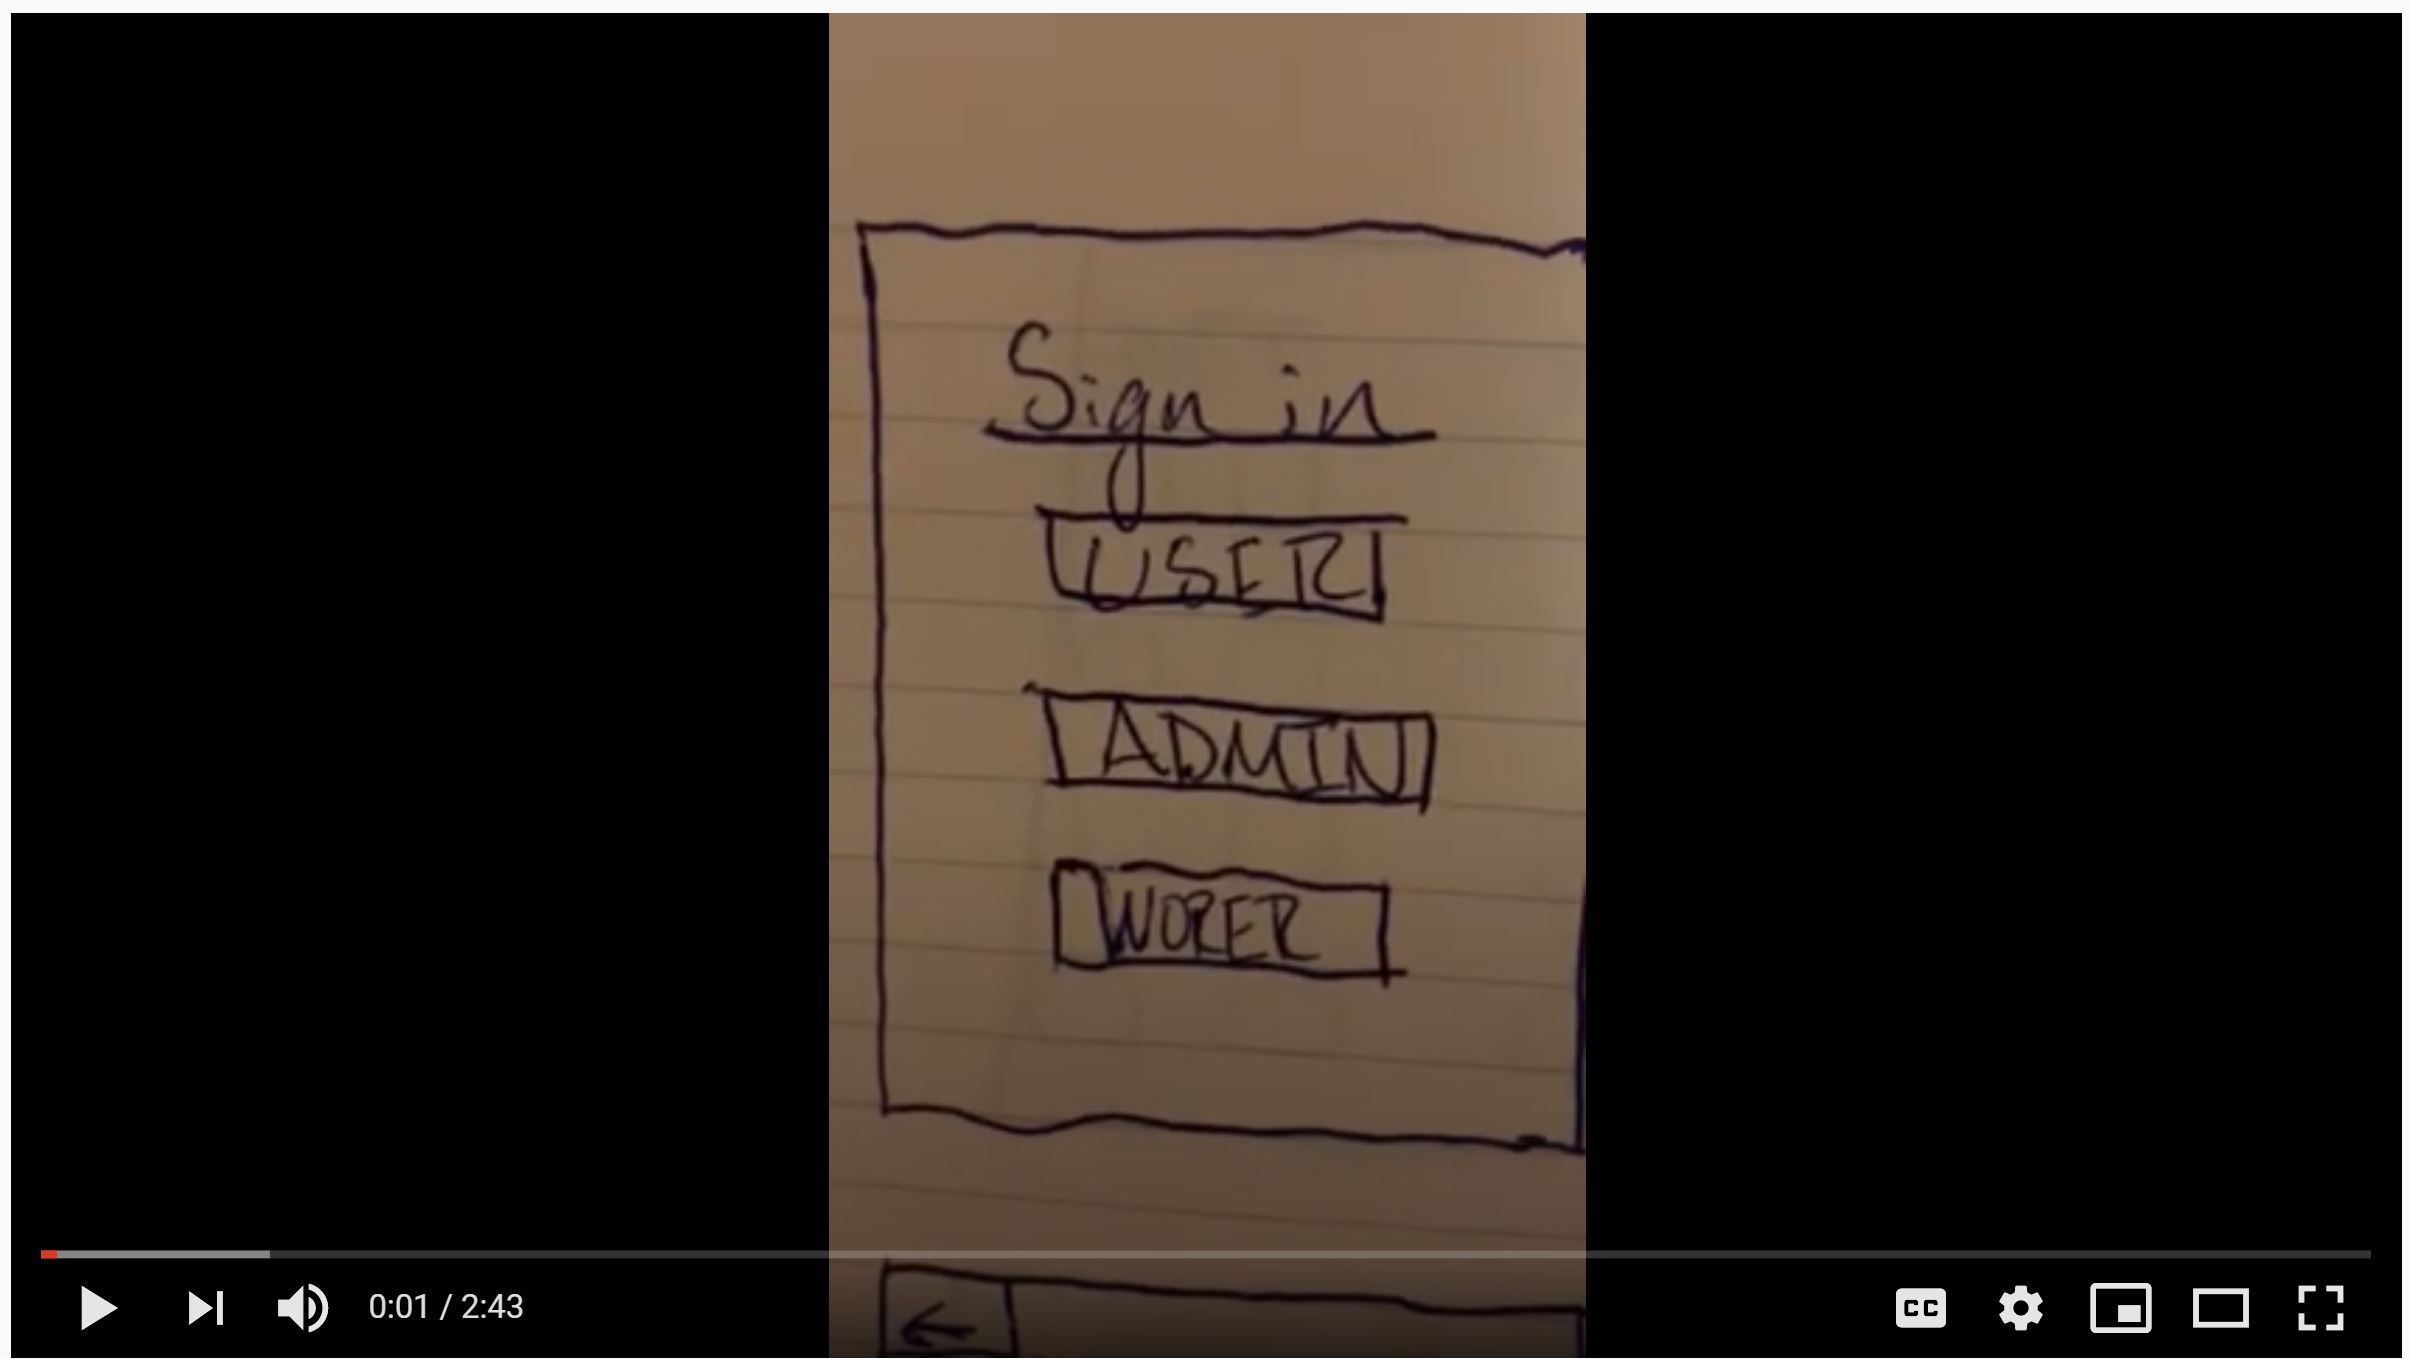 Sign in
USER
ADMIN
WORER
0:01 / 2:43
CC